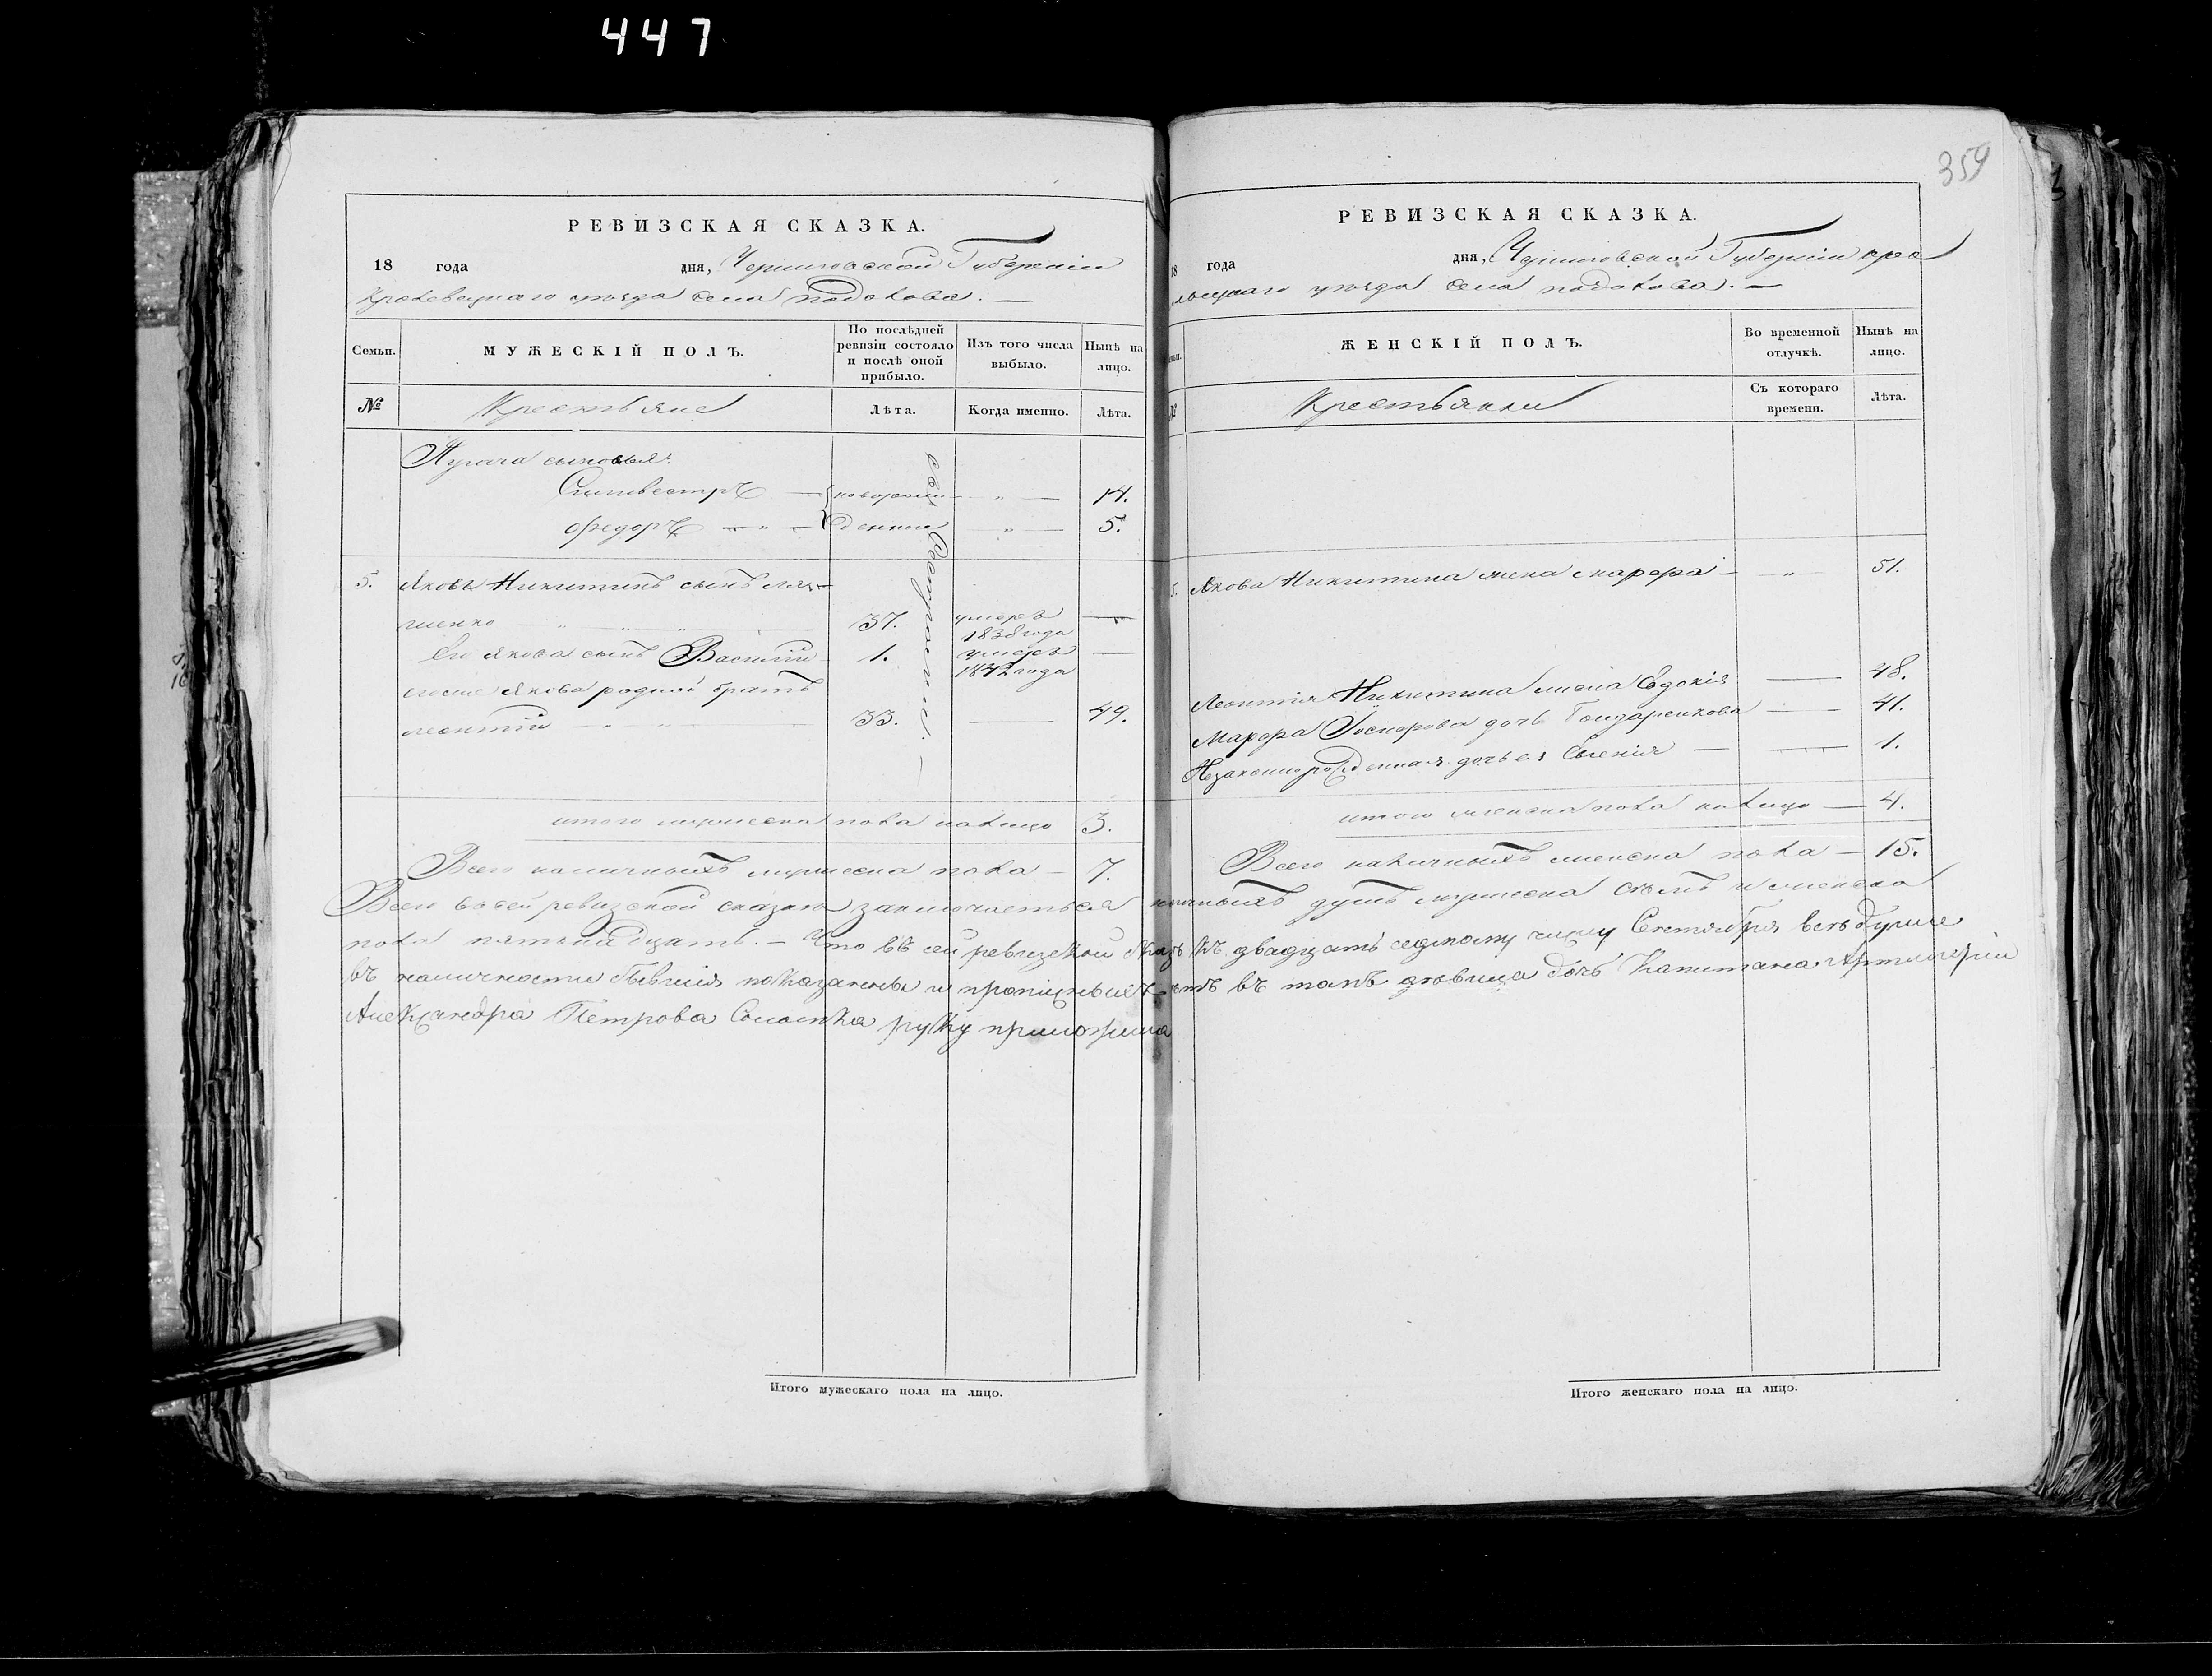 447
РЕВИЗСКАЯ СКАЗКА.
18 года дня, Черниговской Губерніи
Кролевецкаго уезда села подолова. —
Семьи.
МУЖЕСКІЙ ПОЛЪ.
По послѣдней ревизіи состояло и послѣ оной прибыло.
Изъ того числа выбыло.
Нынѣ на лицо.
№
Крестьяне
Лѣта.
Когда именно.
Лѣта.
сыновья:
Силивестръ — новорож — „ — 14.
Федоръ — „ — денные — „ — 5.
5. Яковъ Никитинъ сынъ
37. умеръ 1838 года —
Его Якова сынъ Василій 1. умеръ 1842 года —
Якова родной братъ
леонтій 33. — 49.
итого мужеска пола налицо 3.
Всего наличныхъ мужеска пола — 7.
359
РЕВИЗСКАЯ СКАЗКА.
18 года дня, Черниговской Губерніи кро
левецкаго уезда села подолова. —
ЖЕНСКІЙ ПОЛЪ.
Во временной отлучкѣ.
Нынѣ на лицо.
№
Крестьянки
Съ котораго времени.
Лѣта.
5. Якова Никитина жена марфа — „ — 51.
Леонтія Никитина жена Евдокія — 48.
Марфа Іосифова дочь Гондаренкова — 41.
Незаконнорожденная дочь ея Евгенія — 1.
итого женска пола налицо — 4.
Всего наличныхъ женска пола — 15.
Всего въ сей ревизской сказки заключаеться наличныхъ душъ мужеска семь и женска
пола пятьнадцать. — Что въ сей ревизской сказки къ двадцать седмому числу Сентября всѣ души
въ наличности бывшія показанны и прописныхъ нѣтъ въ томъ дѣвица дочь Капитана Артилеріи
Александра Петрова руку приложила
Итого мужескаго пола на лицо.
Итого женскаго пола на лицо.